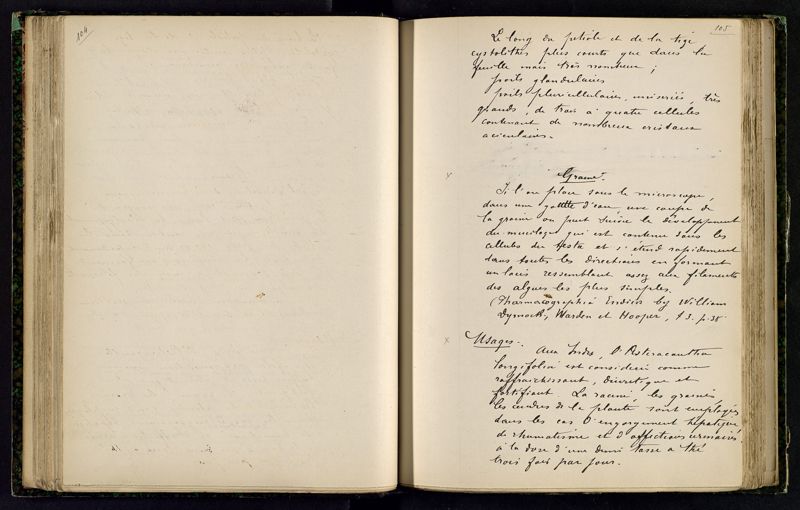 104
105
Le long du pétiole et de la tige
cystolithes plus courts que dans la
feuille mais très nombreux ;
poils glandulaires
poils pluricellulaires, uniseriés, très
grands, de trois à quatre cellules
contenant de nombreux cristaux
aciculaires.
x
Graine.
Si l'on place sous le microscope,
dans une goutte d'eau, une coupe de
la graine on peut suivre le développement
du mucilage qui est contenu dans les
cellules du testa et s'étend rapidement
dans toutes les directions en formant
un lacis ressemblant assez aux filaments
des algues les plus simples.
(Pharmacographia Indica by William
Dymock, Warden et Hooper, t 3. p. 38
x
Usages.
Aux Indes, l'Asteracantha
longifolia est considéré comme
raffraichissant, diurétique et
fortifiant. La racine, les graines,
les cendres de la plante sont employés
dans les cas d'engorgement hépatique
de rhumatisme et d'affections urinaires
à la dose d'une demi tasse à thé
trois fois par jour.